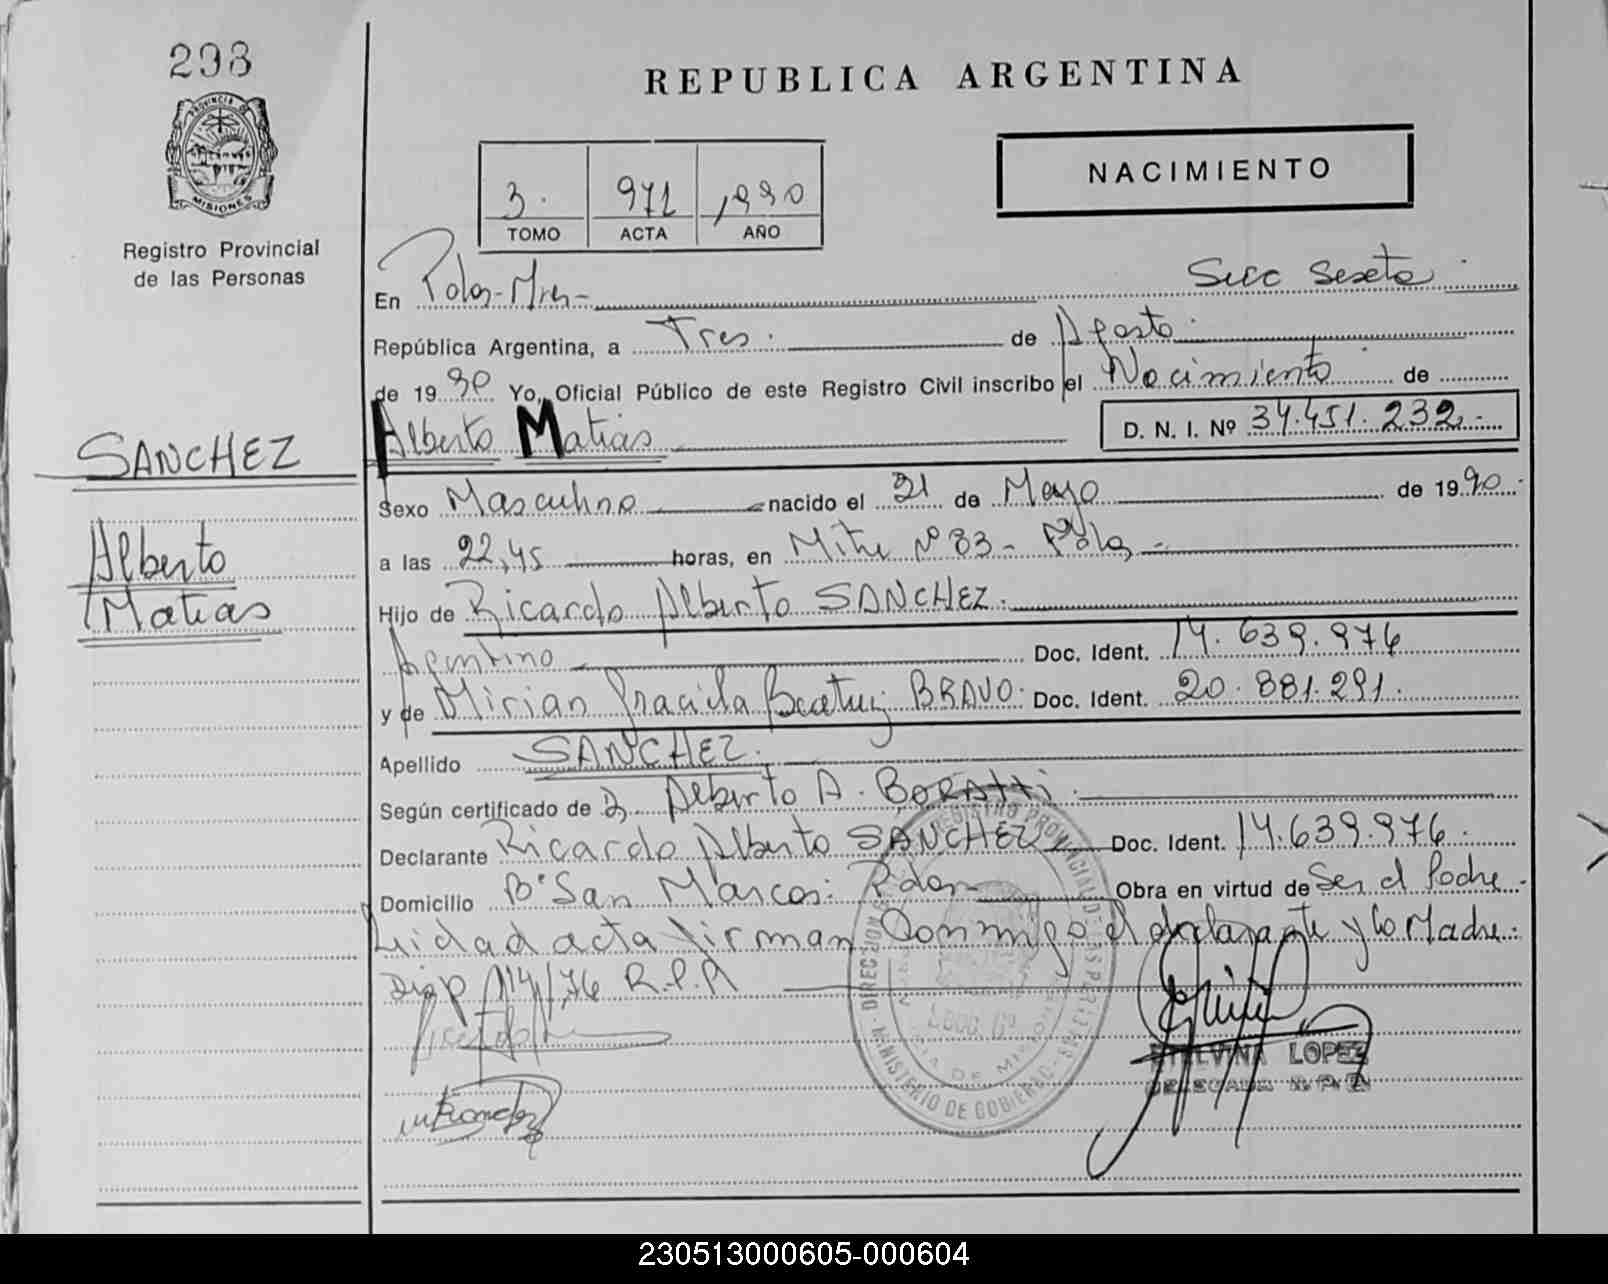 298
REPUBLICA ARGENTINA
PROVINCIA DE
MISIONES
Registro Provincial
de las Personas
3. 971 1990
TOMO ACTA AÑO
NACIMIENTO
En Pdas-Mnes- Secc Sexta
República Argentina, a Tres. de Agosto.
de 1990 Yo, Oficial Público de este Registro Civil inscribo el Nacimiento de
Alberto Matias D. N. I. Nº 34.451.232.-
SANCHEZ
Alberto
Matias
Sexo Masculino nacido el 21 de Mayo de 1990.
a las 22,45 horas, en Mitre Nº 83 - Pdas -
Hijo de Ricardo Alberto SANCHEZ.
Argentino Doc. Ident. 14.639.976
y de Mirian Graciela Beatriz BRAVO. Doc. Ident. 20.881.291.
Apellido SANCHEZ.
Según certificado de D. Alberto A. BORATTI.
Declarante Ricardo Alberto SANCHEZ Doc. Ident. 14.639.976.
Domicilio Bº San Marcos. Pdas- Obra en virtud de Ser el Padre.
Leida el acta firman Conmigo el declarante y la Madre.
Disp 114/76 R.P.P
REGISTRO PROVINCIAL DE LAS PERSONAS
MINISTERIO DE GOBIERNO
ETELVINA LOPEZ
DELEGADA R.P.P.
230513000605-000604